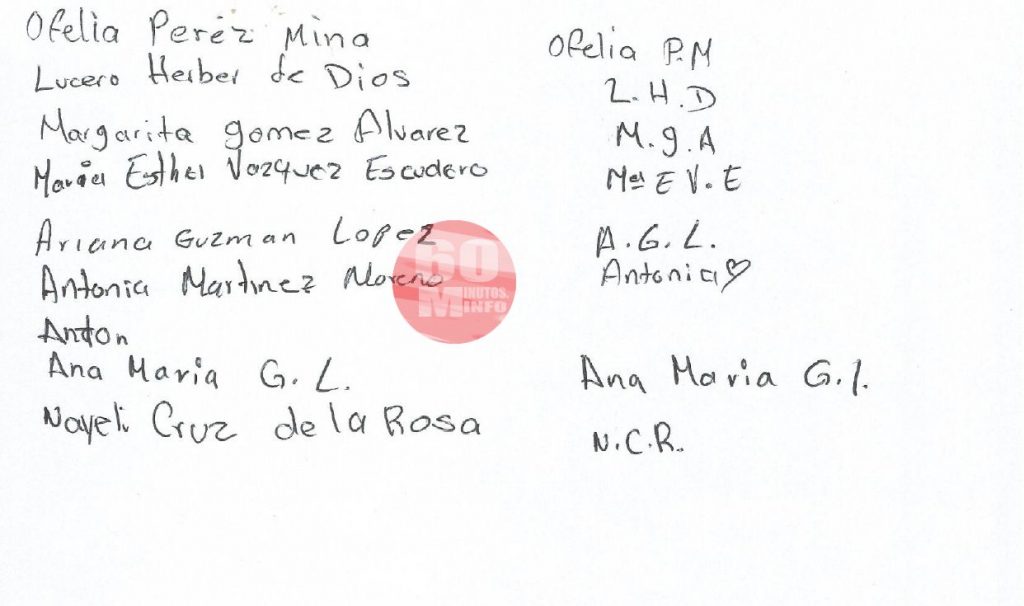 Ofelia Peréz Mina Ofelia P.M
Lucero Herber de Dios L.H.D
Margarita gomez Alvarez M.g.A
Maria Esther Vazquez Escudero Mª E V.E
Ariana Guzman Lopez A.G.L.
Antonia Martinez Moreno Antonia
Anton
Ana Maria G. L. Ana Maria G.l.
Nayeli Cruz de la Rosa N.C.R.
60
MINUTOS.
INFO